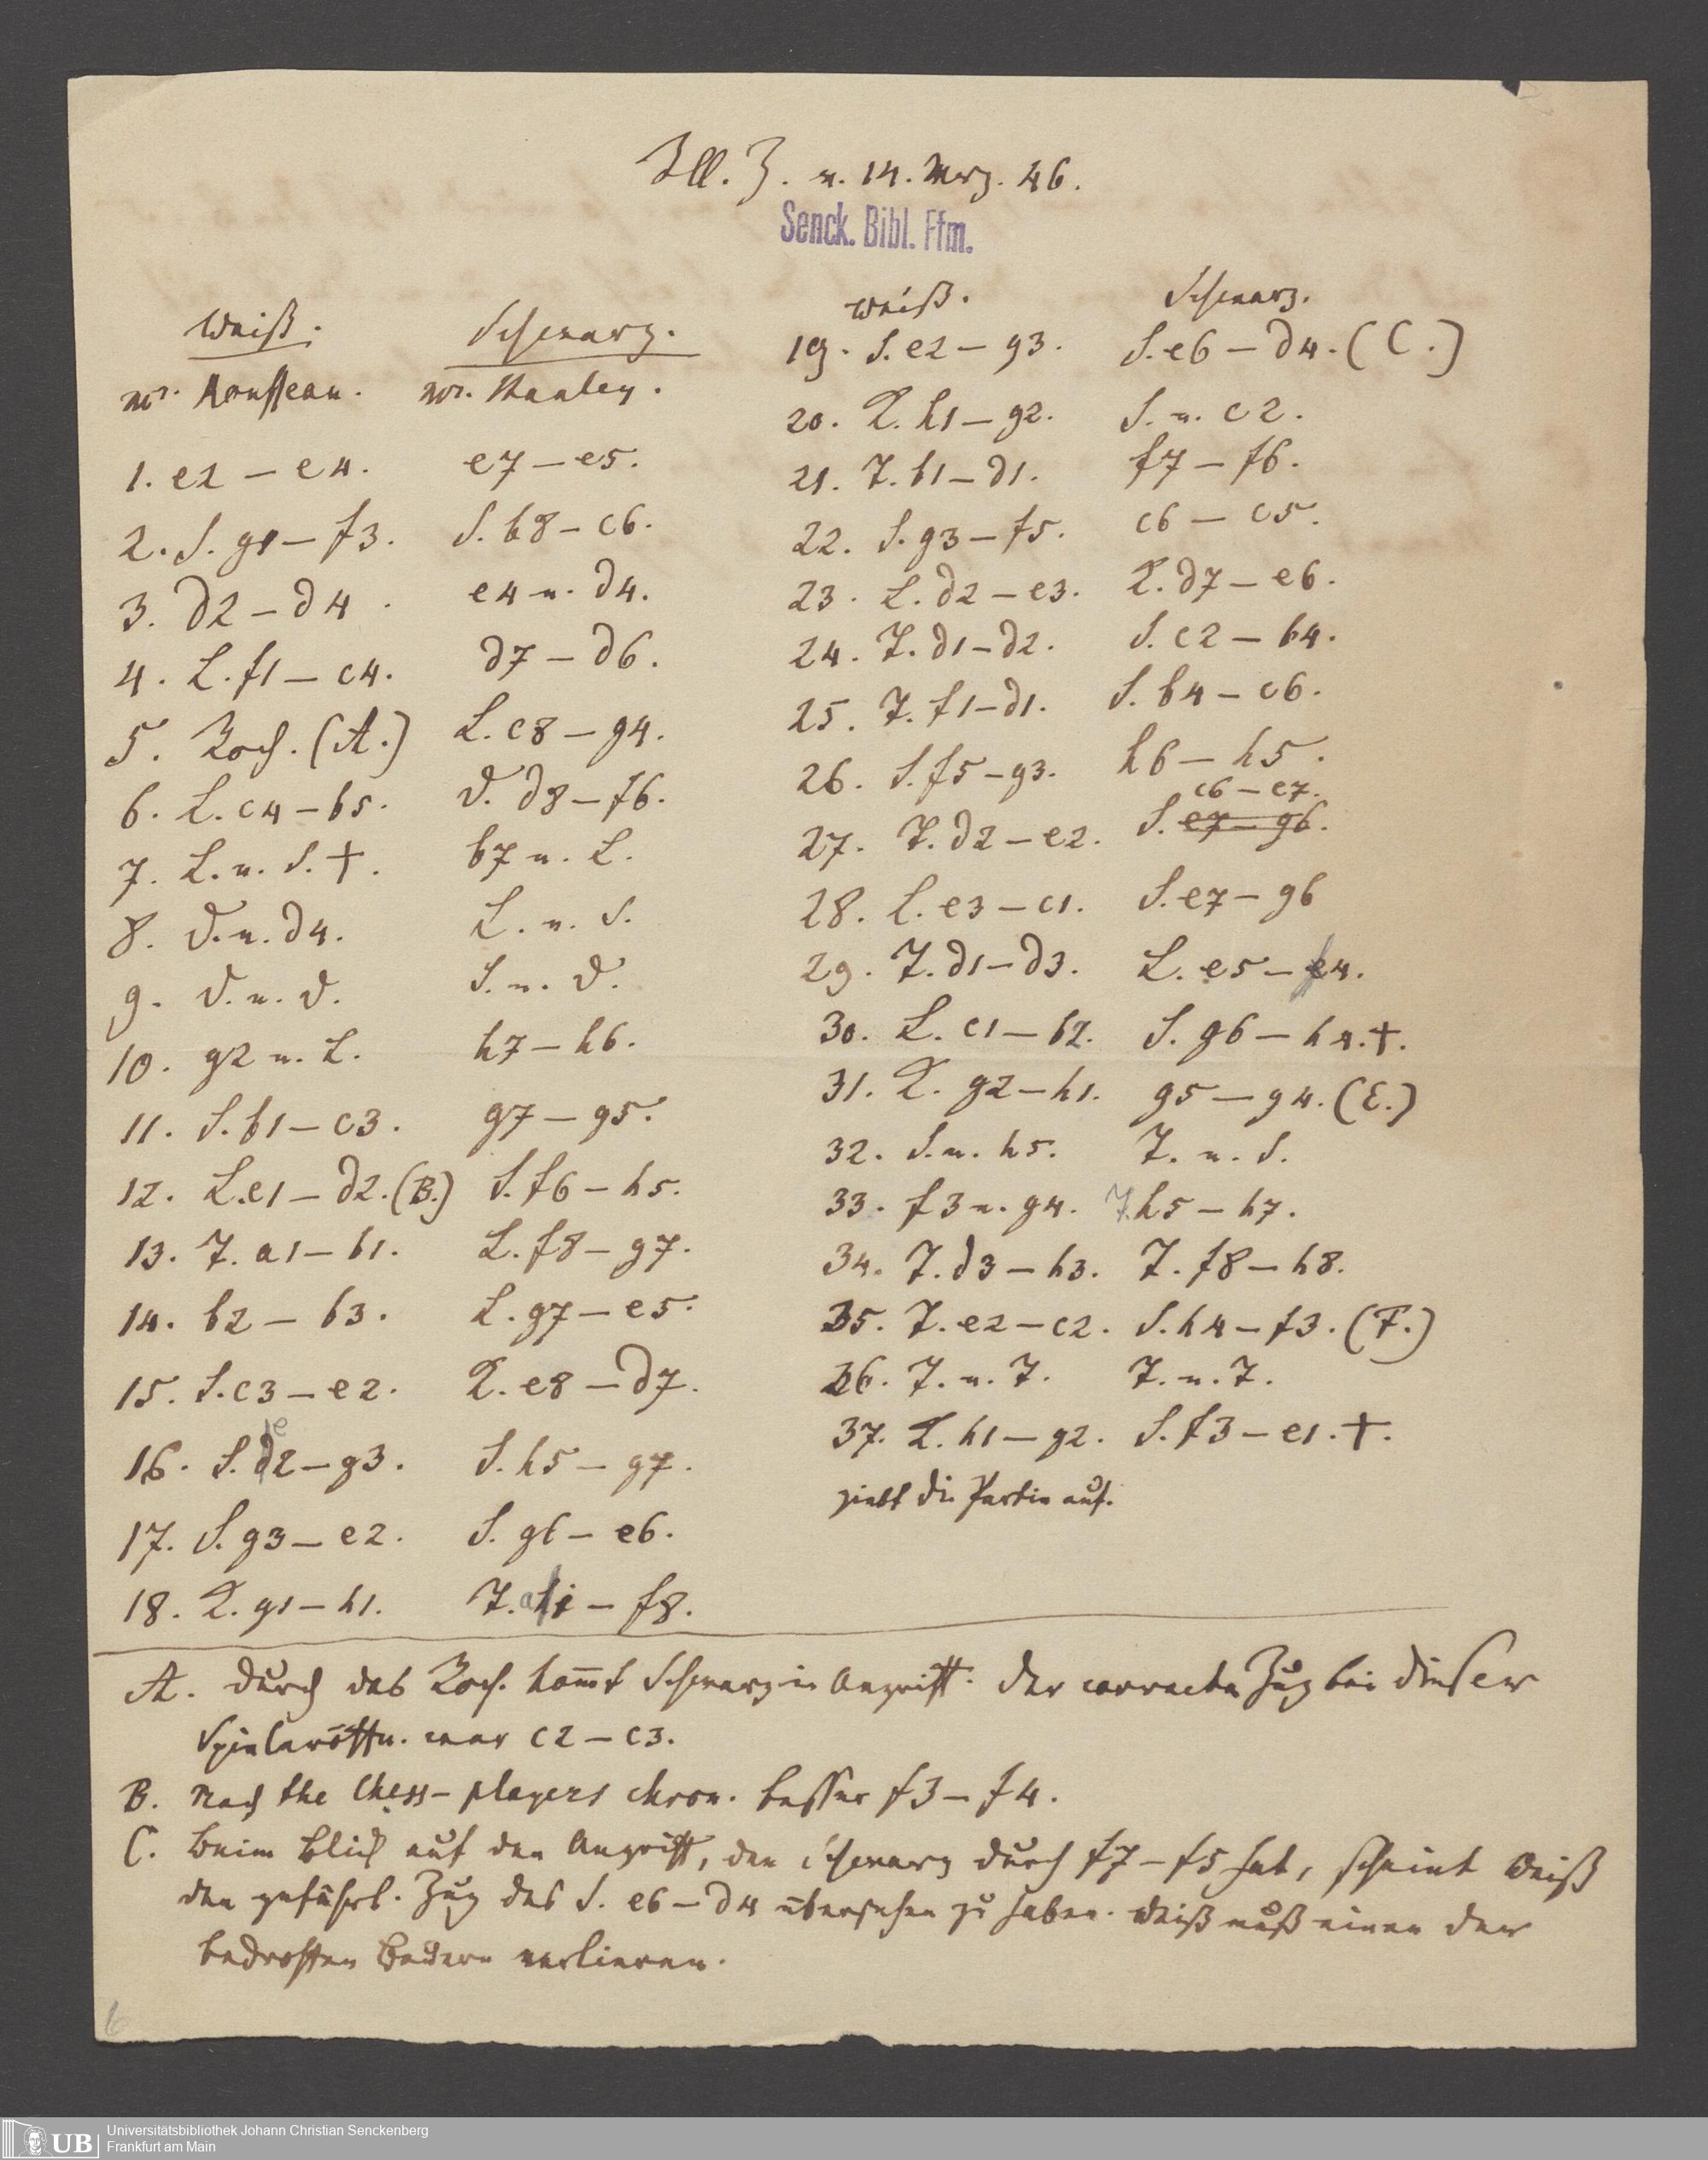 Ill. Z. v. 14. Merz. 46.
Senck. Bibl. Ffm.
Weiß. Schwarz.
Mr. Rousseau. Mr. Stanley.
1. e2 – e4. e7 – e5.
2. S. g1 – f3. S. b8 – c6.
3. d2 – d4. e4 n. d4.
4. L. f1 – c4. d7 – d6.
5. Roch. (A.) L. c8 – g4.
6. L. c4 – b5. D. d8 – f6.
7. L. n. S. †. b7 n. L.
8. D. n. d4. L. n. S.
9. D. n. D. S. n. D.
10. g2 n. L. h7 – h6.
11. S. b1 – c3. g7 – g5.
12. L. c1 – d2. (B.) S. f6 – h5.
13. T. a1 – b1. L. f8 – g7.
14. b2 – b3. L. g7 – e5.
15. S. c3 – e2. K. e8 – d7.
16. S. e2 – g3. S. h5 – g7.
17. S. g3 – e2. S. g6 – e6.
18. K. g1 – h1. T. a – f8.
Weiß. Schwarz.
19. S. e2 – g3. S. e6 – d4. (C.)
20. K. h1 – g2. S. n. c2.
21. T. b1 – d1. f7 – f6.
22. S. g3 – f5. c6 – c5.
23. L. d2 – e3. K. d7 – e6.
24. T. d1 – d2. S. c2 – b4.
25. T. f1 – d1. S. b4 – c6.
26. S. f5 – g3. h6 – h5.
c6 – e7.
27. T. d2 – e2. S. e7 – g6.
28. L. e3 – c1. S. e7 – g6
29. T. d1 – d3. L. e5 – f4.
30. L. c1 – b2. S. g6 – h4. †.
31. K. g2 – h1. g5 – g4. (E.)
32. S. n. h5. T. n. S.
33. f3 n. g4. T. h5 – h7.
34. T. d3 – h3. T. f8 – h8.
35. T. e2 – c2. S. h4 – f3. (F.)
36. T. n. T. T. n. T.
37. K. h1 – g2. S. f3 – e1. †.
giebt die Partie auf.
A. Durch das Roch. kommt Schwarz in Angriff. Der correcte Zug bei dieser
Spieleröffn. war c2 – c3.
B. Nach the Chess-players chron. besser f3 – f4.
C. Beim Blick auf den Angriff, den Schwarz durch f7 – f5 hat, scheint Weiß
den gefährl. Zug des S. e6 – d4 übersehen zu haben. Weiß muß einen der
bedrohten Bauern verlieren.
6
UB
Universitätsbibliothek Johann Christian Senckenberg
Frankfurt am Main